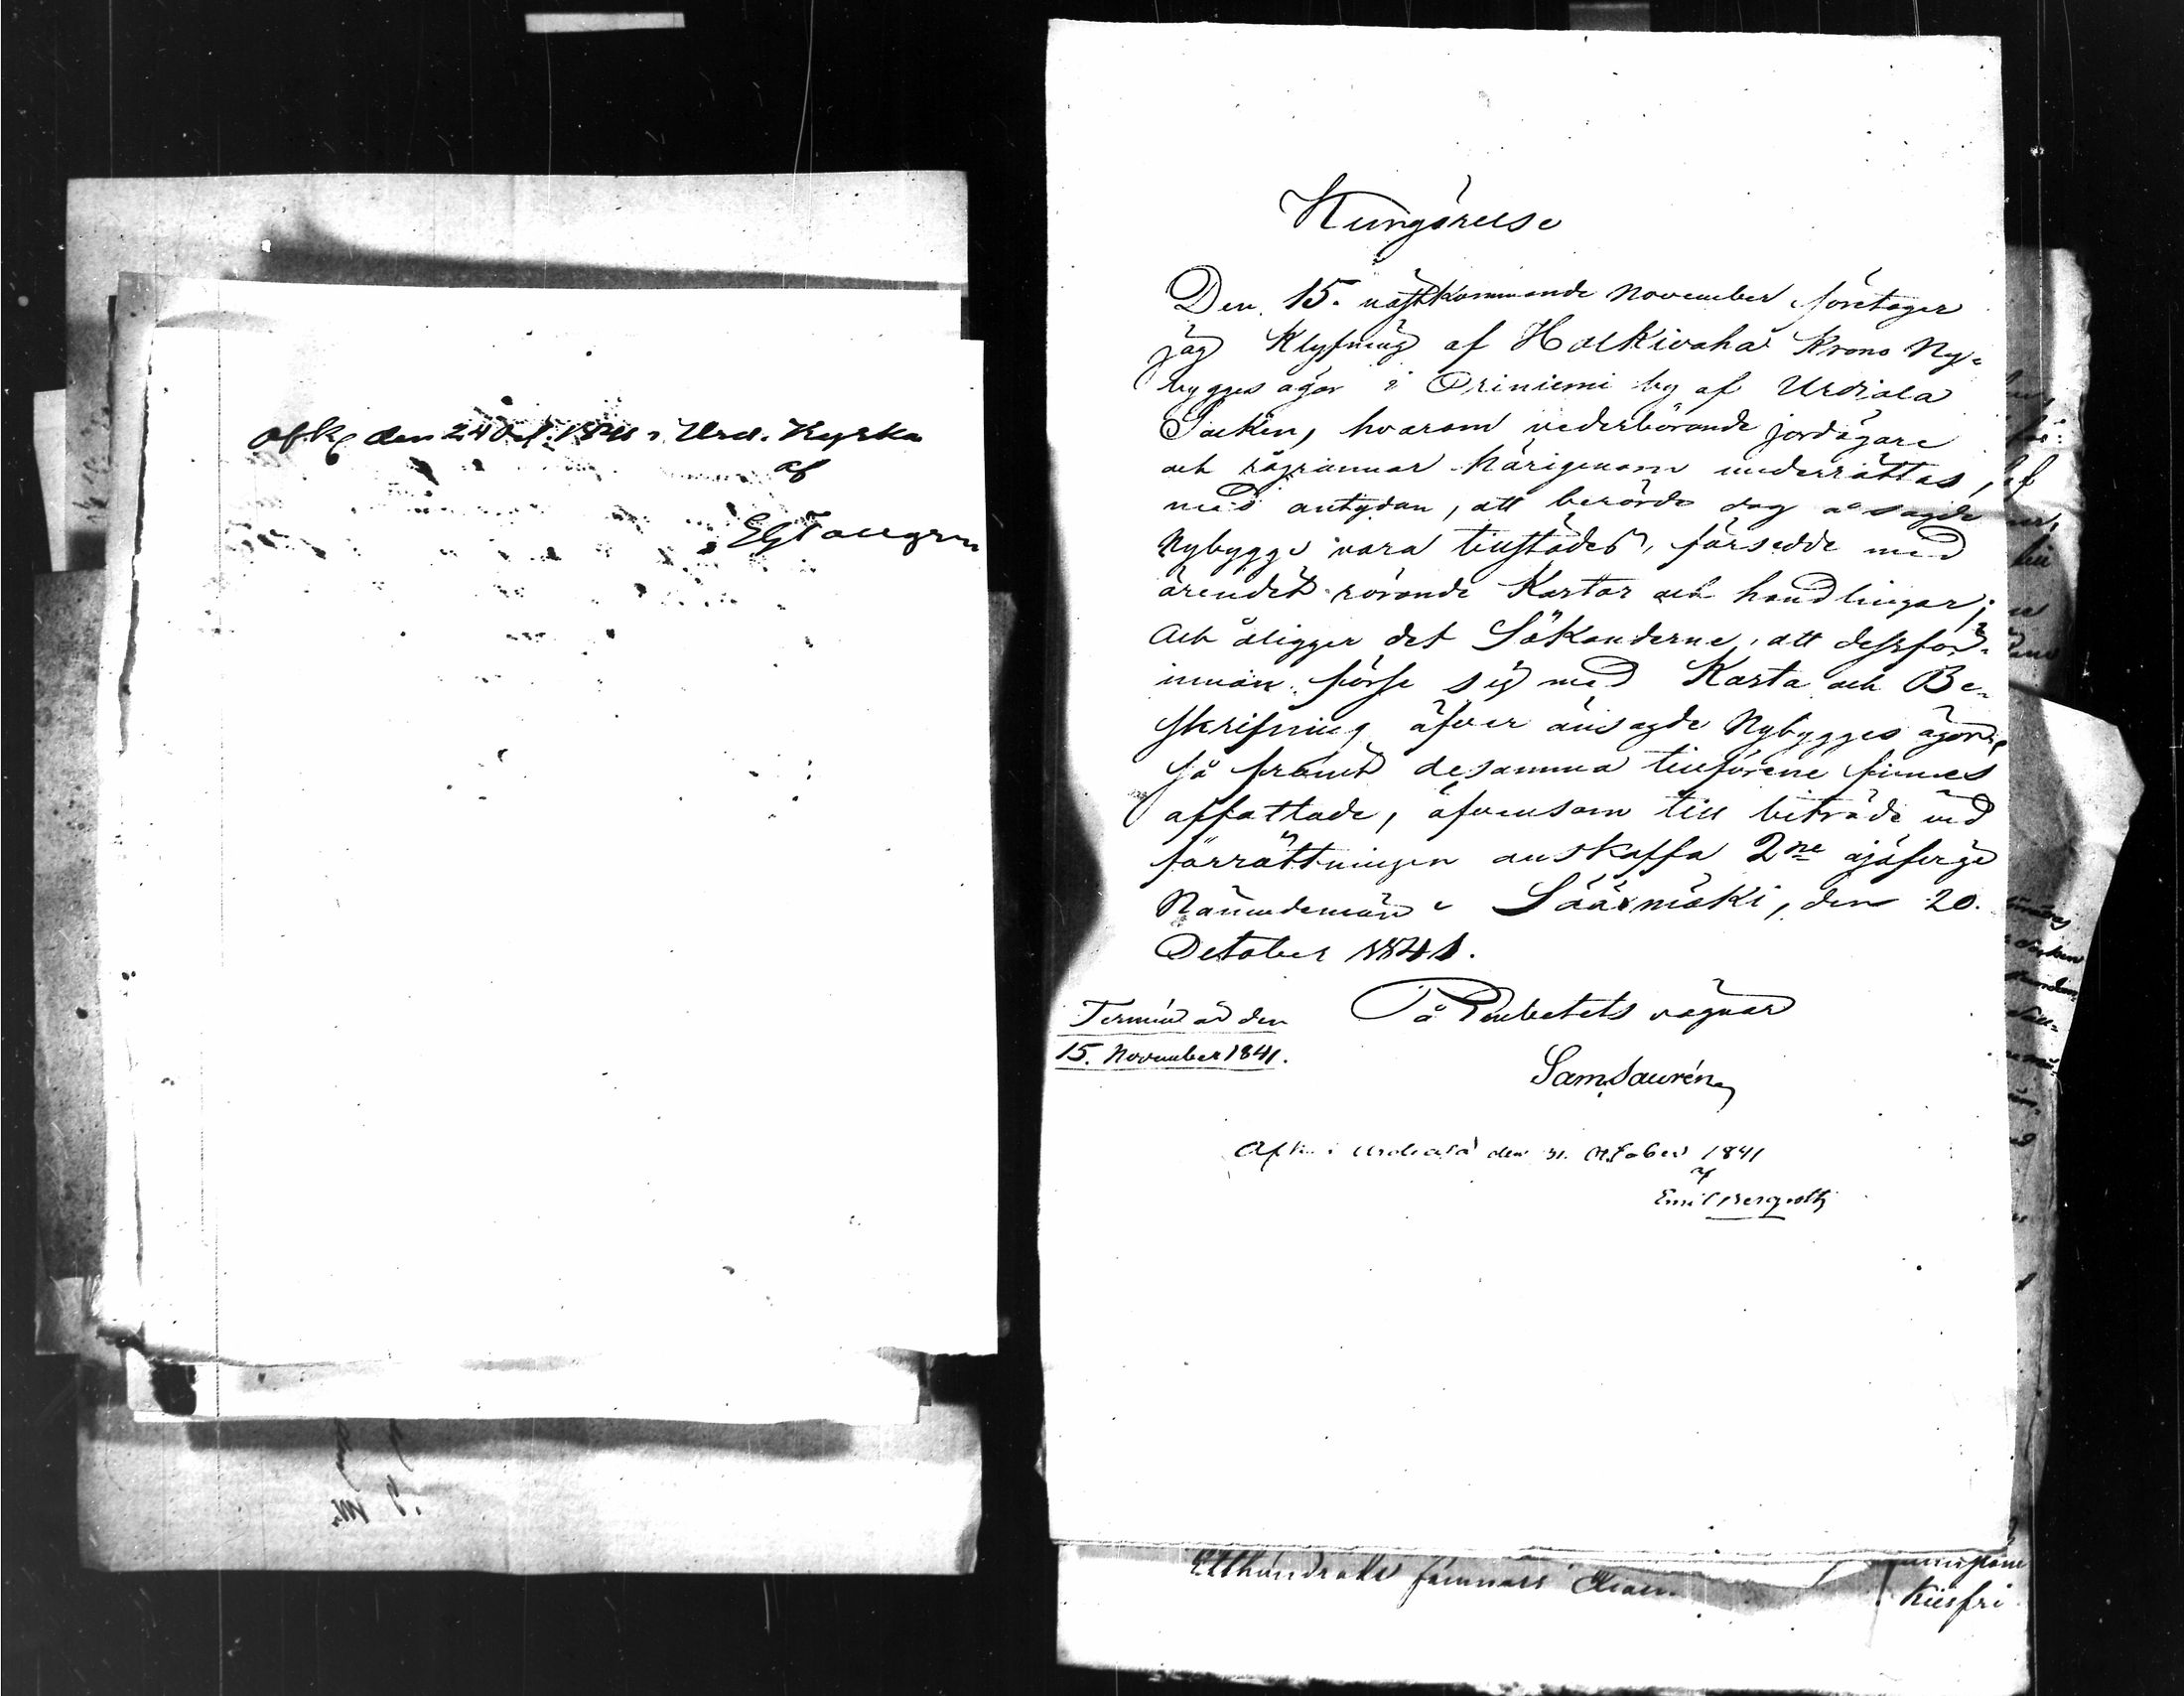 afk. den 24 Oct. 1841 i Urd. Kyrka
af
EGTallgren
Kungörelse
Den 15. nästkommande November företager
jag Klyfning af Holkivaha Krono Ny-
bygges ägor i Oriniemi by af Urdiala
Socken, hvarom vederbörande jordägare
och rågrannar härigenom underrättas,
med antydan, att berörde dag å sagde
Nybygge vara tillstädes, försedde med
ärendet rörande Kartor och handlingar;
Och åligger det Sökanderne, att dessför-
innan förse sig med Karta och Be-
skrifning öfver änsagde Nybygges ägor,
så framt desamma tillförene finnes
affattade, äfvensom till biträde vid
förrättningen anskaffa 2ne ojäfvige
Nämndemän. Sääxmäki, den 20.
October 1841.
Termin är den
15. November 1841.
På Embetets vägnar
Sam. Saurén
Afk. i Urdiala den 31. October 1841
af
Emil Bergroth
Etthundrade famnars